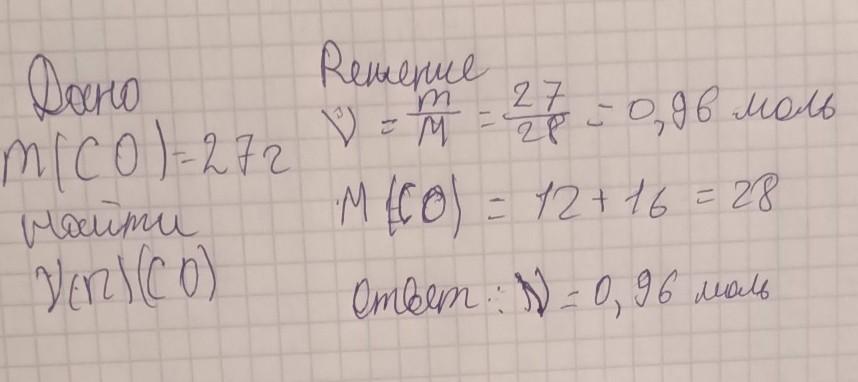 Дано
m(CO)=27г
Найти
ν(n)(CO)
Решение
ν = m/M = 27/28 = 0,96 моль
M(CO) = 12+16 = 28
Ответ: ν = 0,96 моль